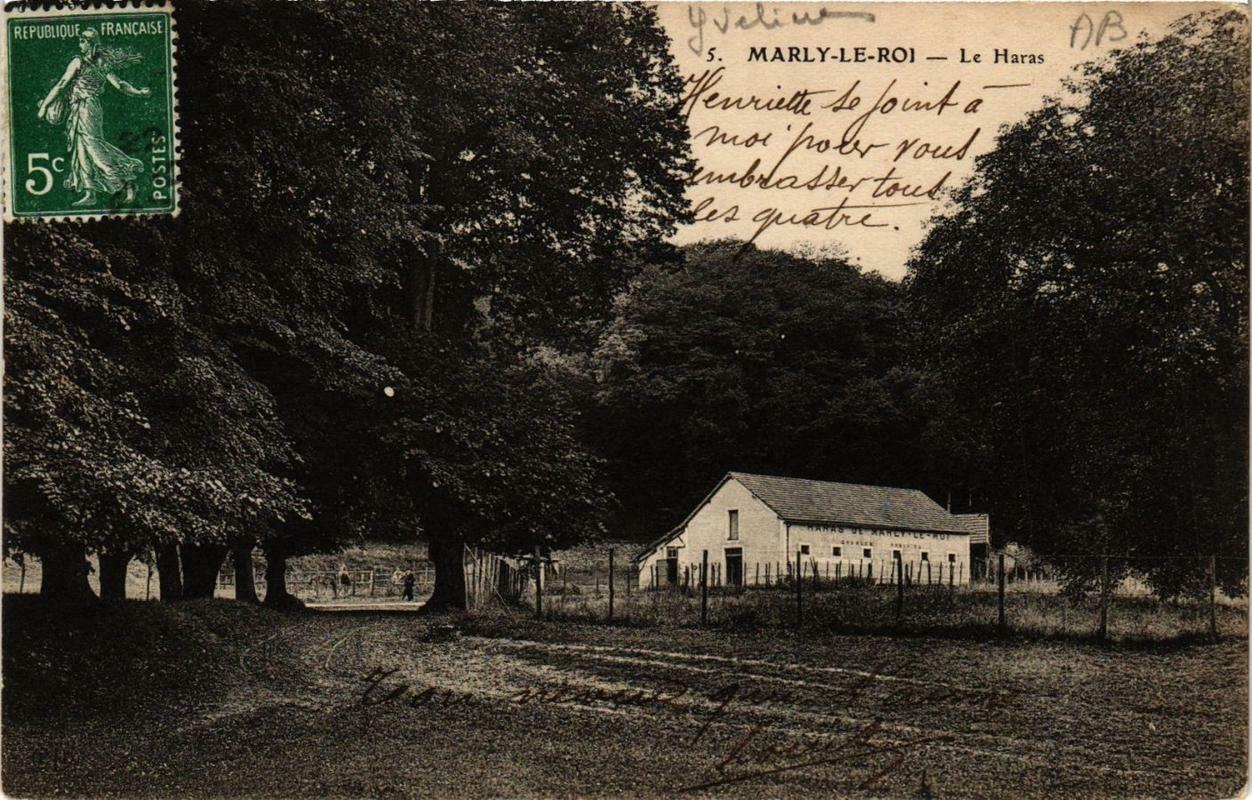 RÉPUBLIQUE FRANÇAISE
5c
POSTES
Yveline
AB
5. MARLY-LE-ROI — Le Haras
Henriette se joint à
moi pour vous
embrasser tous
les quatre.
HARAS DE MARLY-LE-ROI